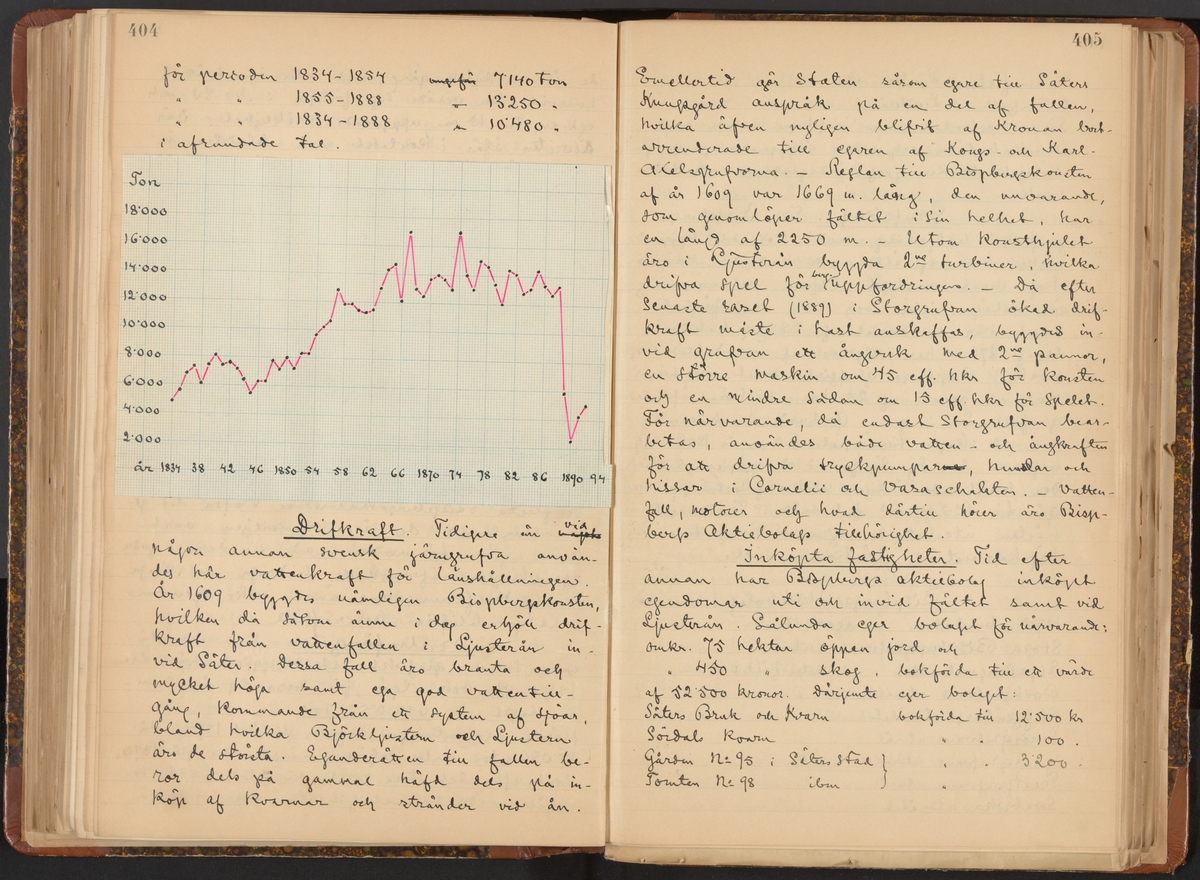 404
för perioden 1834-1854 ungefär 7140 Ton
" " 1855-1888 " 13250 "
" 1834-1888 " 10'480 "
i afrundade tal.
Ton
18'000
16'000
14'000
12'000
10'000
8'000
6'000
4'000
2'000
år 1834 38 42 46 1850 54 58 62 66 1870 74 78 82 86 1890 94
Drifkraft. Tidigare än vid
någon annan svensk järngrufva använ-
des här vattenkraft för länshållningen.
År 1609 byggdes nämligen Bispbergskonsten,
hvilken då såsom ännu i dag erhöll drif-
kraft från vattenfallen i Ljusterån in-
vid Säter. Dessa fall äro branta och
mycket höga samt ega god vattentill-
gång, kommande från ett system af sjöar,
bland hvilka Björkljustern och Ljustern
äro de största. Eganderätten till fallen be-
ror dels på gammal häfd dels på in-
köp af kvarnar och stränder vid ån.
405
Emellertid gör Staten såsom egare till Säters
Kungsgård anspråk på en del af fallen,
hvilka äfven nyligen blifvit af Kronan bort-
arrenderade till egaren af Kongs- och Karl-
Axelsgrufvorna. – Reglan till Bispbergskonsten
af år 1609 var 1669 m. lång, den nuvarande,
som genomlöper fältet i sin helhet, har
en längd af 2250 m. – Utom konsthjulet
äro i Ljusterån byggda 2ne turbiner, hvilka
drifva spel för uppfordringen. – Då efter
senaste raset (1889) i Storgrufvan ökad drif-
kraft måste i hast anskaffas, byggdes in-
vid grufvan ett ångverk med 2ne pannor,
en större maskin om 45 eff. hkr för konsten
och en mindre sådan om 15 eff. hkr för spelet.
För närvarande, då endast Storgrufvan bear-
betas, användes både vatten- och ångkraften
för att drifva tryckpumpar, hundar och
hissar i Cornelii och Vasaschakten. – Vatten-
fall, motorer och hvad därtill hörer äro Bisp-
bergs Aktiebolags tillhörighet.
Inköpta fastigheter. Tid efter
annan har Bispbergs aktiebolag inköpt
egendomar uti och invid fältet samt vid
Ljusterån. Sålunda eger bolaget för närvarande:
omkr. 75 hektar öppen jord och
" 450 " skog, bokförda till ett värde
af 52'500 kronor. Därjemte eger bolaget:
Säters Bruk och Kvarn bokförda till 12'500 kr
Sördals kvarn " 100 "
Gården No 95 i Säters Stad } " " 3'200 "
Tomten No 98 ibm "